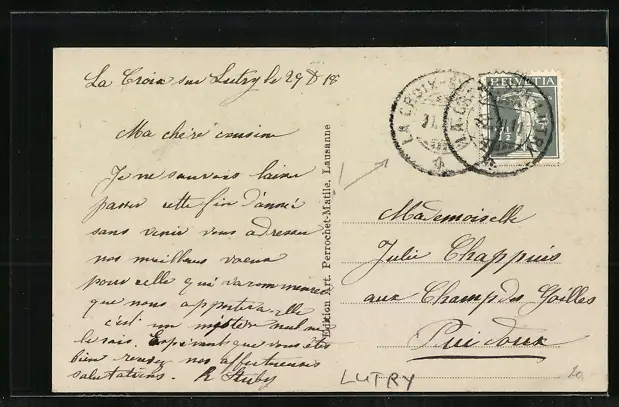 La Croix sur Lutry le 29 D 18
Ma chère cousine
Je ne saurais laisser
passer cette fin d'année
sans venir vous adresser
nos meilleurs vœux
pour celle qui va commencer
que nous apportera-elle
c'est un mystère nul ne
le sais. Espérant que vous êtes
bien nos affectueuses
salutations. R
Edition Art. Perrochet-Matile, Lausanne
HELVETIA
LA CROIX
LUTRY
Mademoiselle
Julie Chappuis
aux Champs des Goilles
Puidoux
LUTRY
20